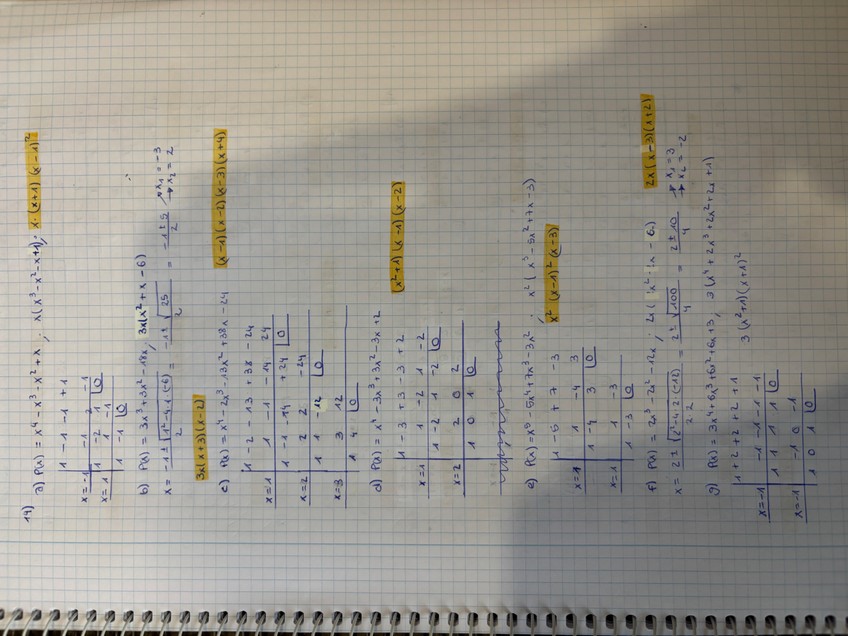 19)
a) P(x) = x⁴ - x³ - x² + x ; x(x³ - x² - x + 1); x·(x+1)(x-1)²
1 -1 -1 +1
x=-1 -1 2 -1
1 -2 1 0
x=1 1 -1
1 -1 0
b) P(x) = 3x³ + 3x² - 18x; 3x(x² + x - 6)
x = -1 ± √1²-4·1·(-6) / 2 = -1 ± √25 / 2 = -1 ± 5 / 2 → x₁ = -3
→ x₂ = 2
3x(x+3)(x-2)
c) P(x) = x⁴ - 2x³ - 13x² + 38x - 24 (x-1)(x-2)(x-3)(x+4)
1 -2 -13 +38 -24
x=1 1 -1 -14 24
1 -1 -14 +24 0
x=2 2 2 -24
1 1 -12 0
x=3 3 12
1 4 0
d) P(x) = x⁴ - 3x³ + 3x² - 3x + 2 (x²+1)(x-1)(x-2)
1 -3 +3 -3 +2
x=1 1 -2 1 -2
1 -2 1 -2 0
x=2 2 0 2
1 0 1 0
e) P(x) = x⁵ - 5x⁴ + 7x³ - 3x² ; x²(x³ - 5x² + 7x - 3)
x²(x-1)²(x-3)
1 -5 +7 -3
x=1 1 -4 3
1 -4 3 0
x=1 1 -3
1 -3 0
f) P(x) = 2x³ - 2x² - 12x ; 2x(x² - x - 6) 2x(x-3)(x+2)
x = 2 ± √2²-4·2·(-12) / 2·2 = 2 ± √100 / 4 = 2 ± 10 / 4 → x₁ = 3
→ x₂ = -2
g) P(x) = 3x⁴ + 6x³ + 6x² + 6x + 3, 3(x⁴ + 2x³ + 2x² + 2x + 1)
1 +2 +2 +2 +1
x=-1 -1 -1 -1 -1
1 1 1 1 0
x=-1 -1 0 -1
1 0 1 0
3(x²+1)(x+1)²